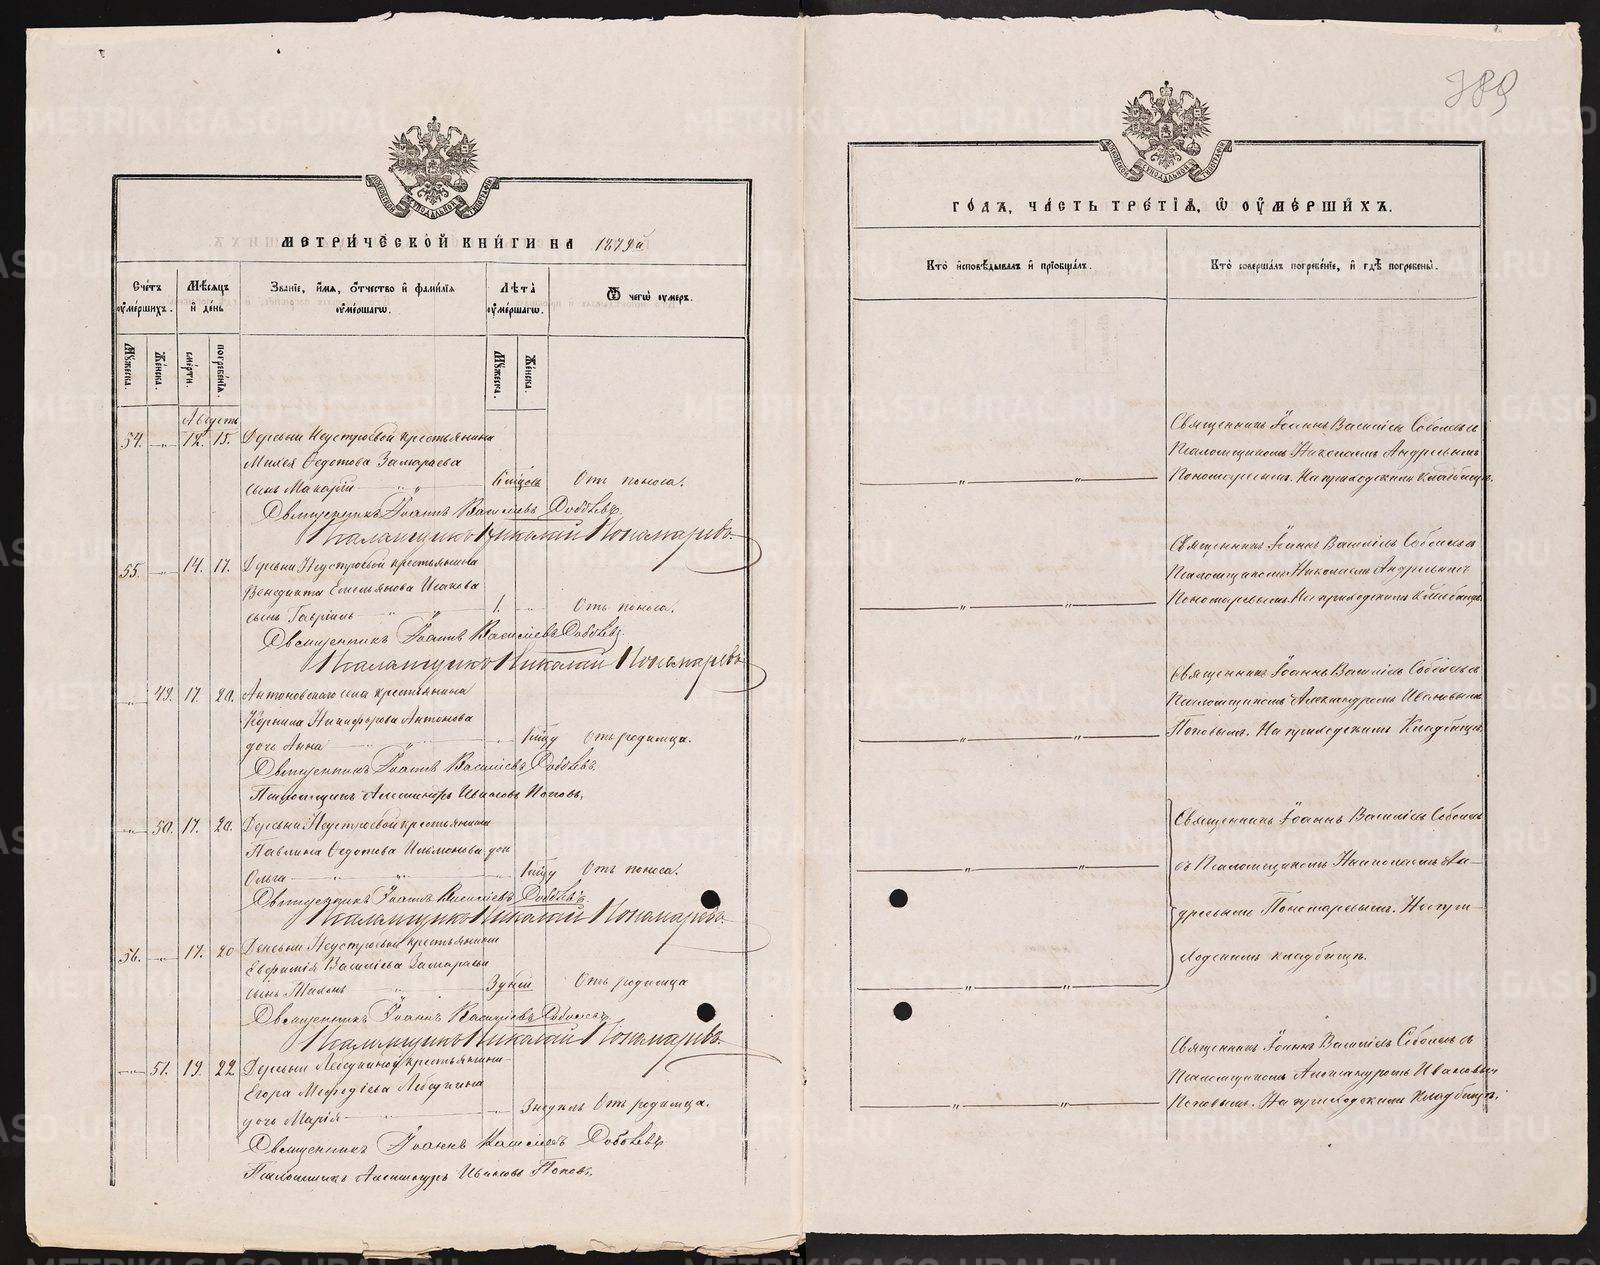 МЕТРИЧЕСКОЙ КНИГИ НА 1879й
Счетъ умершихъ.
Мѣсяцъ и день
Званіе, имя, отчество и фамилія умершаго.
Лѣта умершаго.
Отъ чего умеръ.
Мужеска.
Женска.
смерти.
погребенія.
Мужеска.
Женска.
Августъ
54. 12. 15. Деревни Неустроевой крестьянина
Михея Ѳедотова Замараева
сынъ Макарій 6 мѣсяцъ Отъ поноса.
Священникъ Іоаннъ Василіевъ Соболевъ.
Псаломщикъ Николай Пономаревъ
55. 14. 17. Деревни Неустроевой крестьянина
Венедикта Емельянова Исакова
сынъ Гавріилъ 1. Отъ поноса.
Священникъ Іоаннъ Василіевъ Соболевъ.
Псаломщикъ Николай Пономаревъ
49. 17. 20. Антоновскаго села крестьянина
Корнила Никифорова Антонова
дочь Анна Отъ родимца.
Священникъ Іоаннъ Василіевъ Соболевъ.
Псаломщикъ Александръ Ивановъ Поповъ.
50. 17. 20. Деревни Неустроевой крестьянина
Павлина Ѳедотова дочь
Ольга Отъ поноса.
Священникъ Іоаннъ Василіевъ Соболевъ.
Псаломщикъ Николай Пономаревъ
56. 17. 20 Деревни Неустроевой крестьянина
Евфимія Василіева Замараева
сынъ 3 дней Отъ родимца
Священникъ Іоаннъ Василіевъ Соболевъ
Псаломщикъ Николай Пономаревъ.
51. 19. 22 Деревни Лебедкиной крестьянина
Егора Меѳодіева Лебедкина
дочь Марія 3 недѣль Отъ родимца.
Священникъ Іоаннъ Василіевъ Соболевъ
Псаломщикъ Александръ Ивановъ Поповъ.
389
ГОДЪ, ЧАСТЬ ТРЕТІЯ, О УМЕРШИХЪ.
Кто исповѣдывалъ и пріобщалъ.
Кто совершалъ погребеніе, и гдѣ погребены.
Священникъ Іоаннъ Василіевъ Соболевъ съ
Псаломщикомъ Николаемъ Андреевымъ
Пономаревымъ. На приходскомъ кладбищѣ.
Священникъ Іоаннъ Василіевъ Соболевъ съ
Псаломщикомъ Николаемъ Андреевымъ
Пономаревымъ. На приходскомъ кладбищѣ.
Священникъ Іоаннъ Василіевъ Соболевъ съ
Псаломщикомъ Александромъ Ивановымъ
Поповымъ. На приходскомъ кладбищѣ.
Священникъ Іоаннъ Василіевъ Соболевъ
съ Псаломщикомъ Николаемъ Ан-
дреевымъ Пономаревымъ. На при-
ходскомъ кладбищѣ.
Священникъ Іоаннъ Василіевъ Соболевъ съ
Псаломщикомъ Александромъ Ивановымъ
Поповымъ. На приходскомъ кладбищѣ.
METRIKI.GASO-URAL.RU